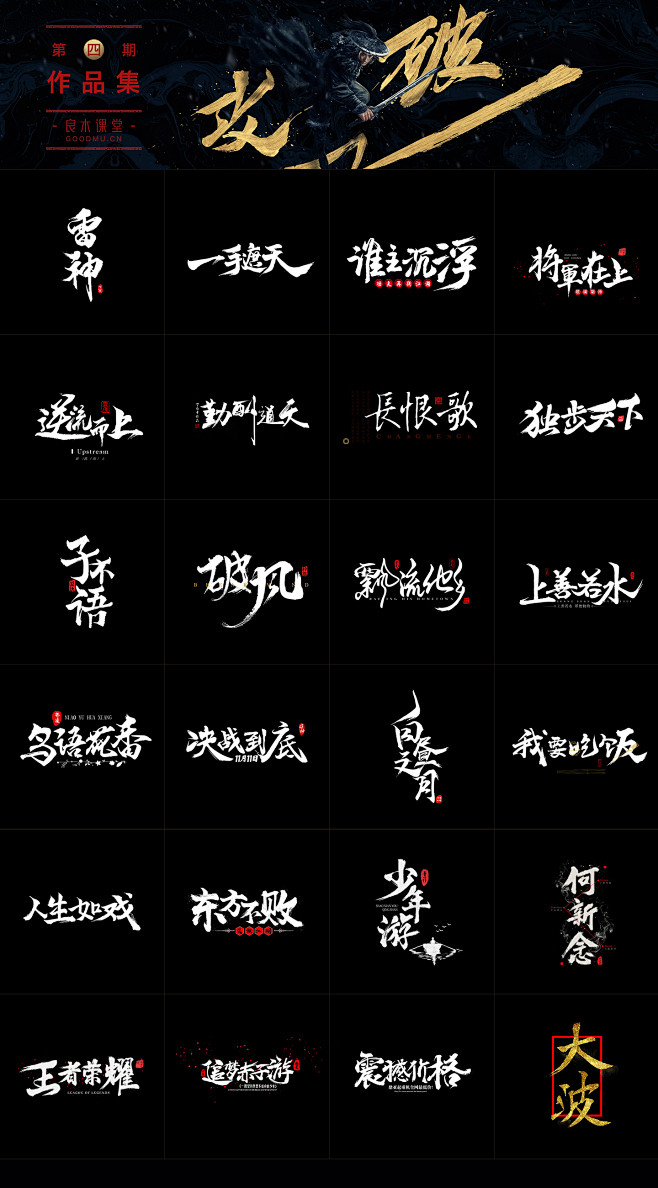 第四期
作品集
良木课堂
GOODMU.CN
攻破
雷神
一手遮天
谁主沉浮
将軍在上
逆流而上
Upstream
勤酬道天
長恨歌
独步天下
子不语
破风
飘流他乡
上善若水
鸟语花香
NIAO YU HUA XIANG
决战到底
11月11日
白昼之月
我要吃饭
人生如戏
东方不败
少年游
何新念
王者荣耀
LEAGUE OF LEGENDS
追梦赤子游
震撼价格
大波